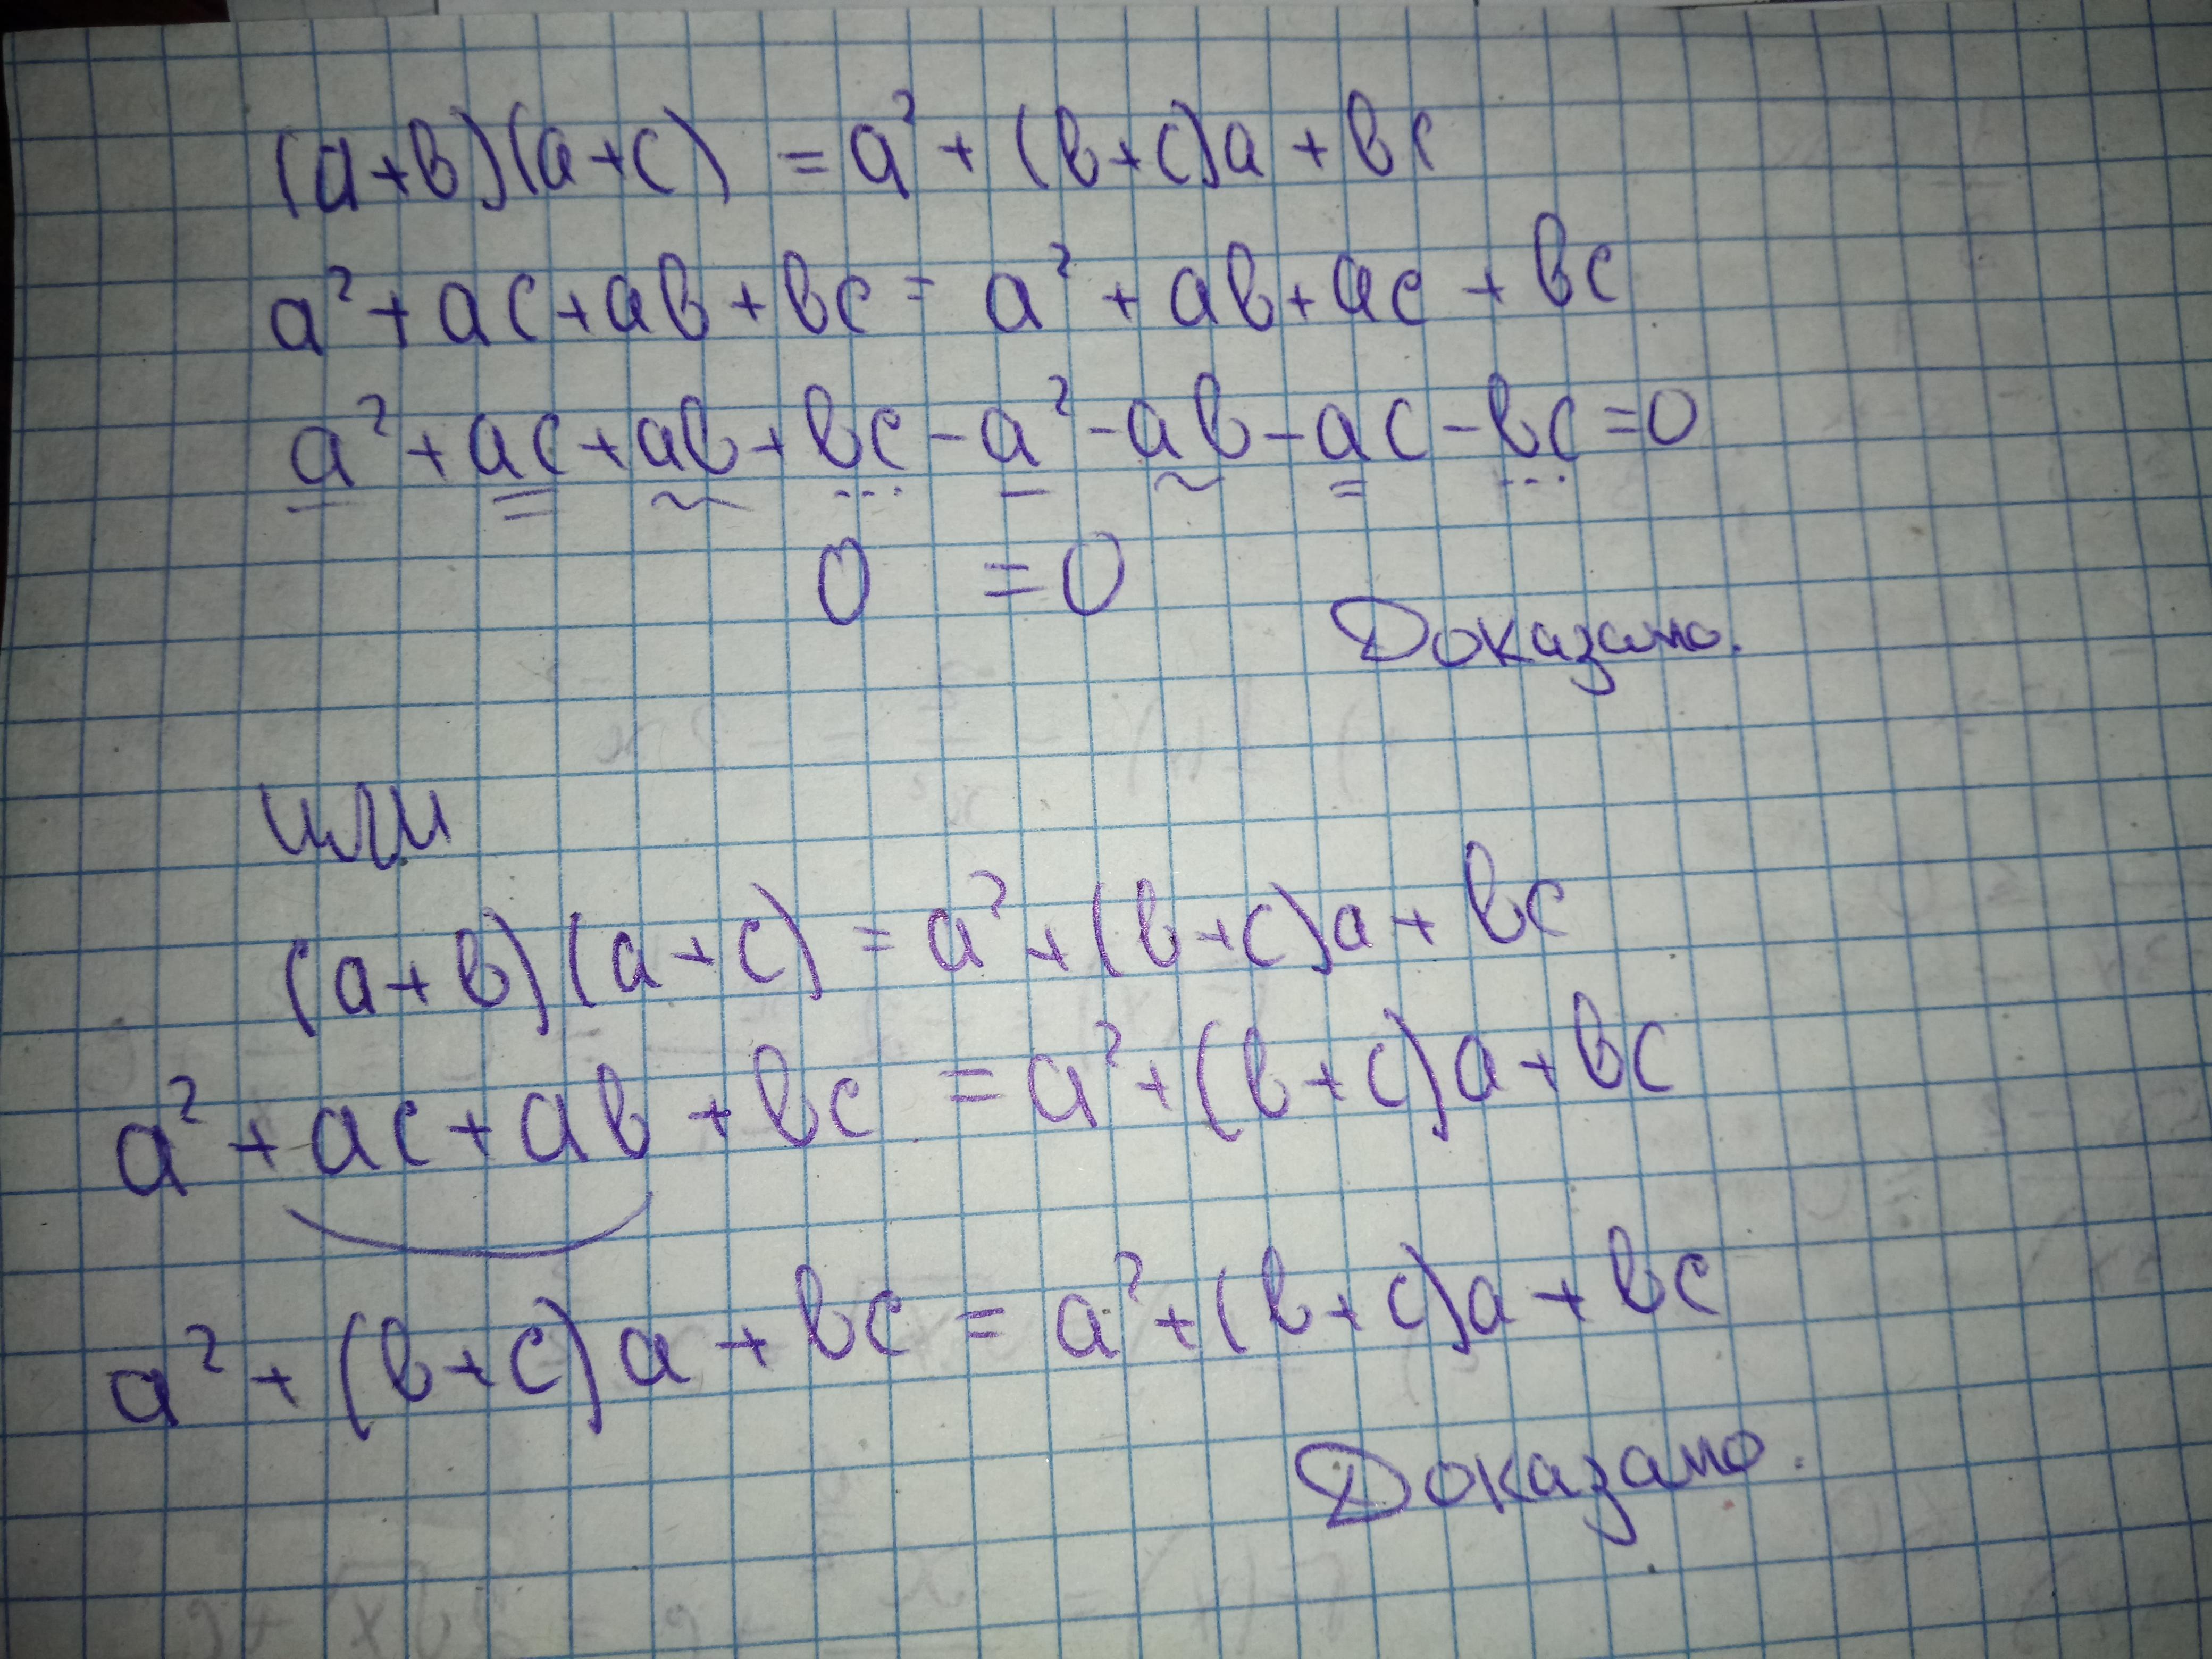 (a+b)(a+c) = a² + (b+c)a + bc
a² + ac + ab + bc = a² + ab + ac + bc
a² + ac + ab + bc - a² - ab - ac - bc = 0
0 = 0
Доказано.
или
(a+b)(a+c) = a² + (b+c)a + bc
a² + ac + ab + bc = a² + (b+c)a + bc
a² + (b+c)a + bc = a² + (b+c)a + bc
Доказано.